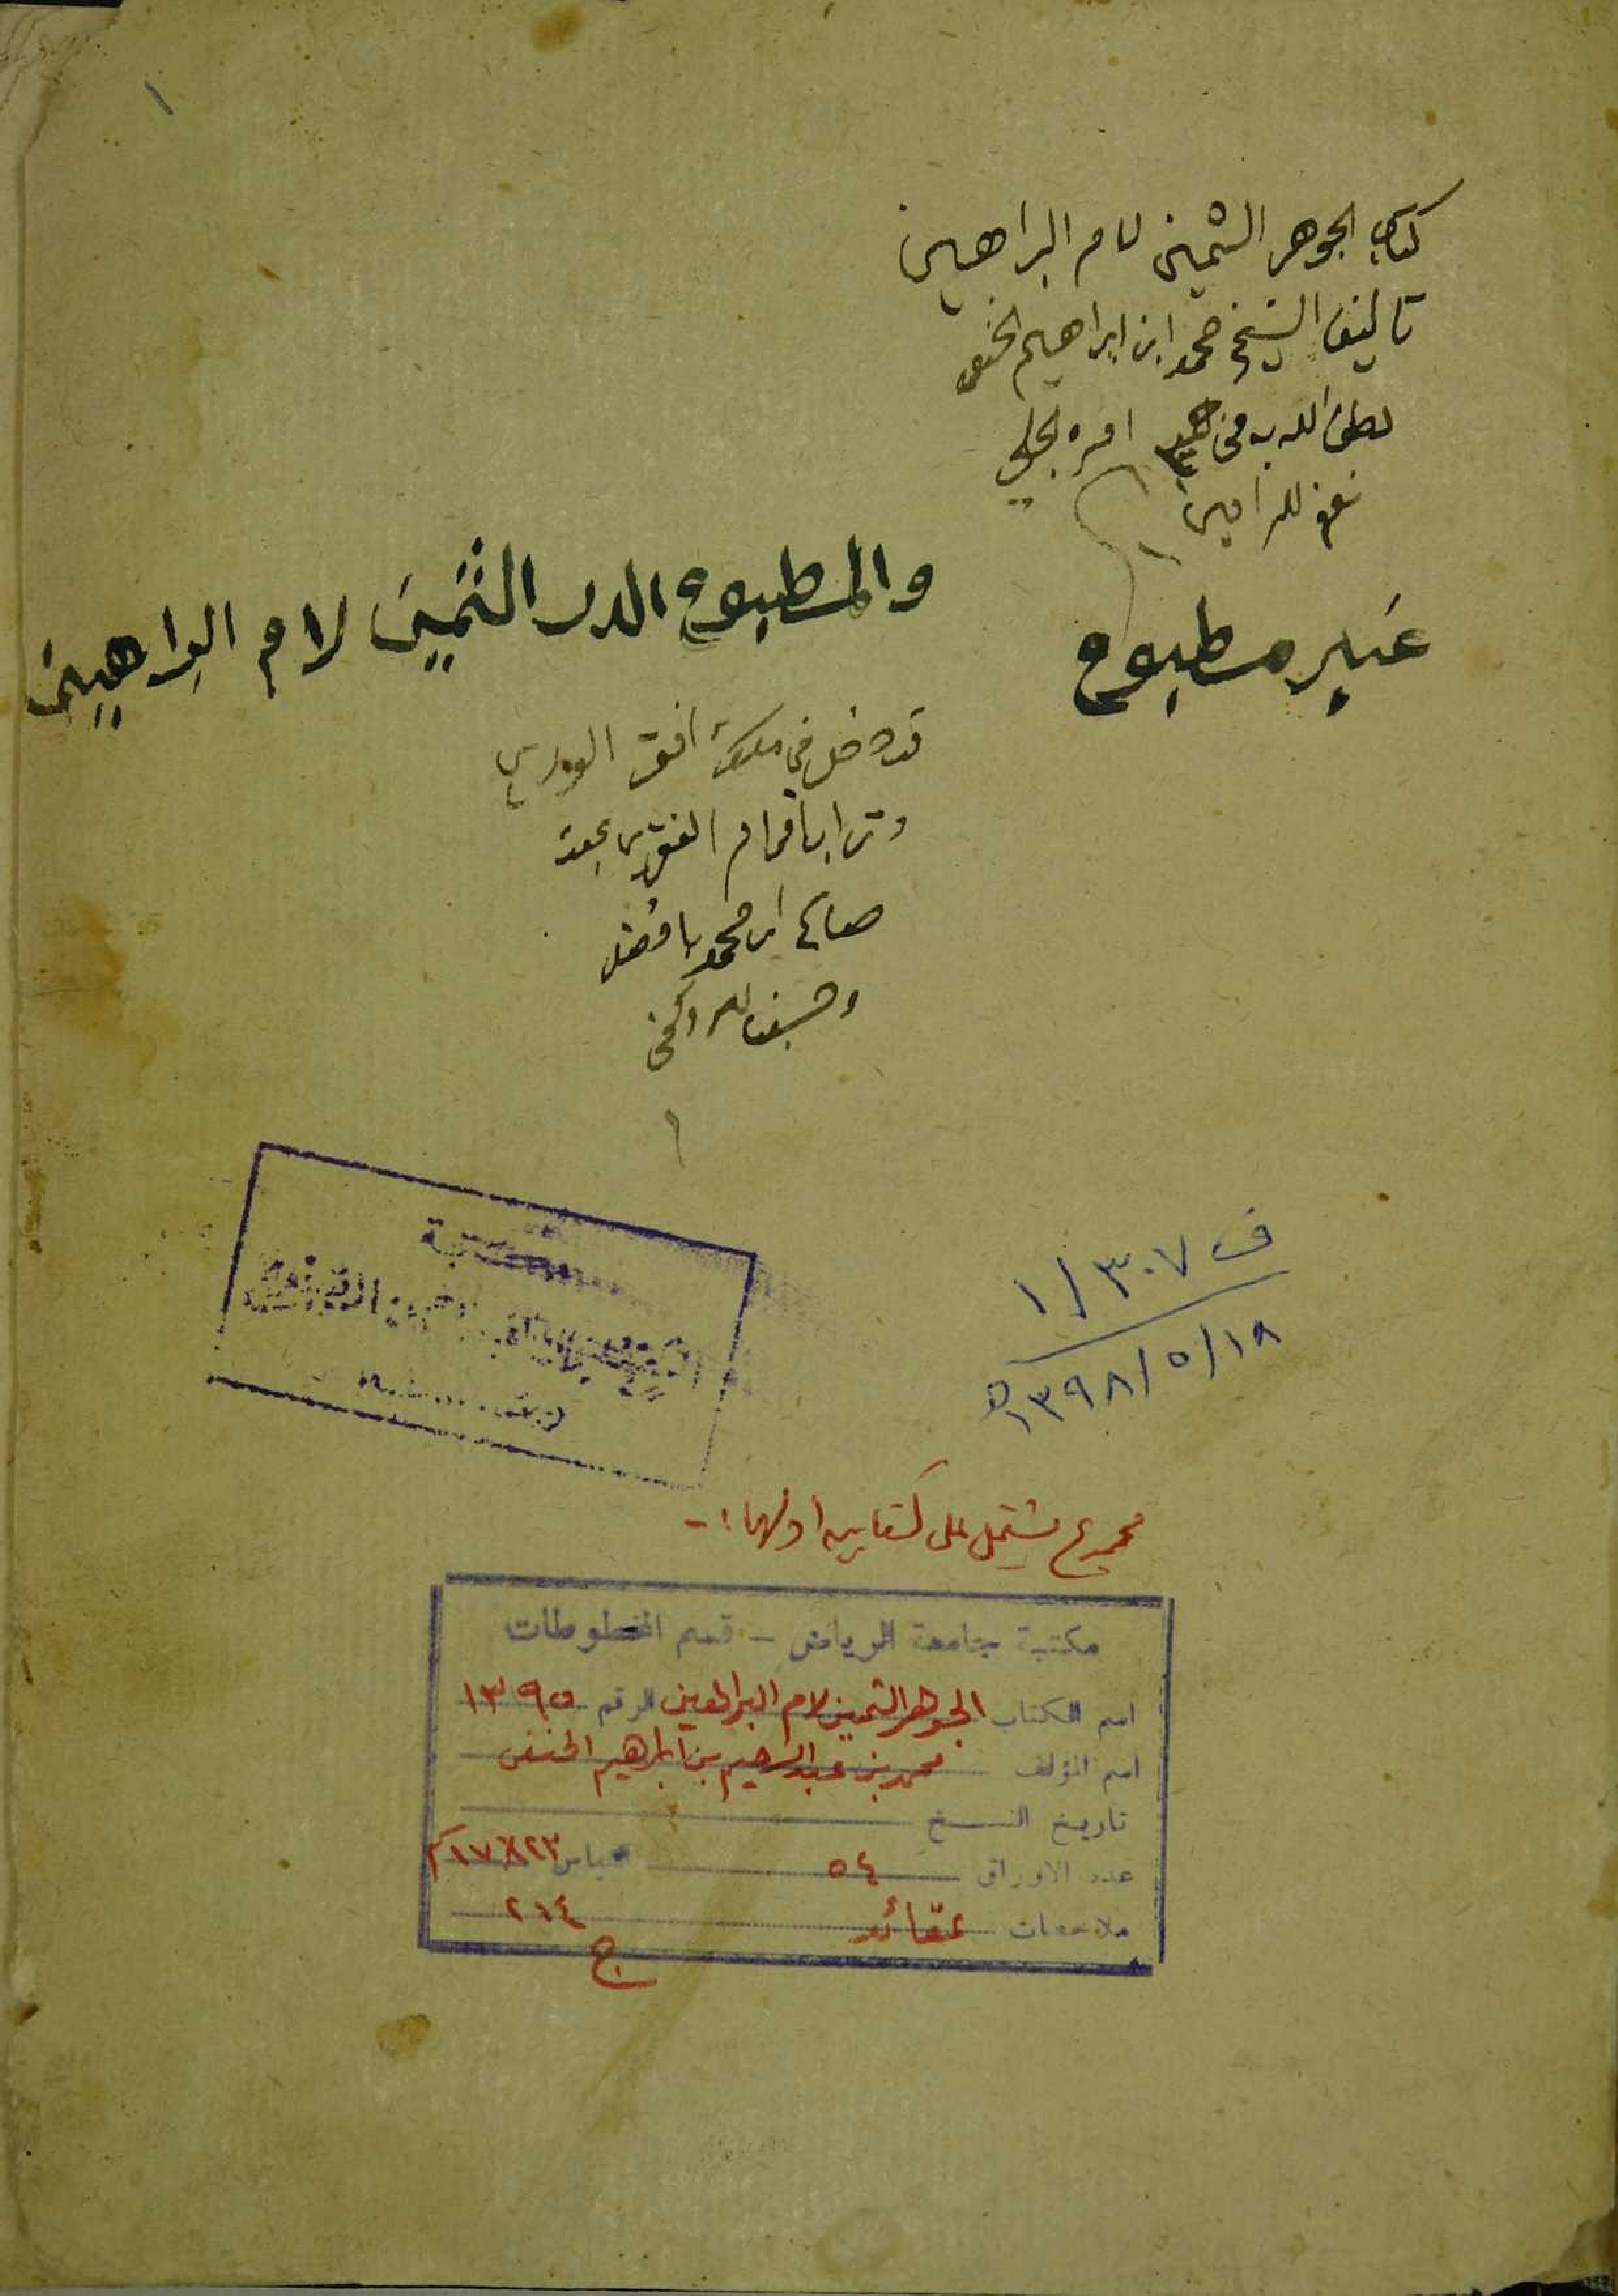 ١
كتاب الجوهر الثمين لام البراهين
تاليف الشيخ محمد ابن ابراهيم الحنفي
لطف الله به في امره الجلي
امين
غير مطبوع
والمطبوع الدر الثمين لام البراهين
قد دخل في ملك افقر الورى
وترابا قدام الفقير
صالح ابن محمد بافضل
ف ١/٣٠٧
١٣٩٨/٥/١٨هـ
مجموع يشتمل على كتابين اولهما :-
مكتبة جامعة الرياض - قسم المخطوطات
اسم الكتاب الجوهر الثمين لام البراهين الرقم ١٣٩٥
اسم المؤلف محمد بن عبدالرحيم بن ابراهيم الحنفي
تاريخ النسخ
عدد الاوراق ٥٤ قياس ١٧٨٢٣سم
ملاحظات عقائد ٢١٤
ج